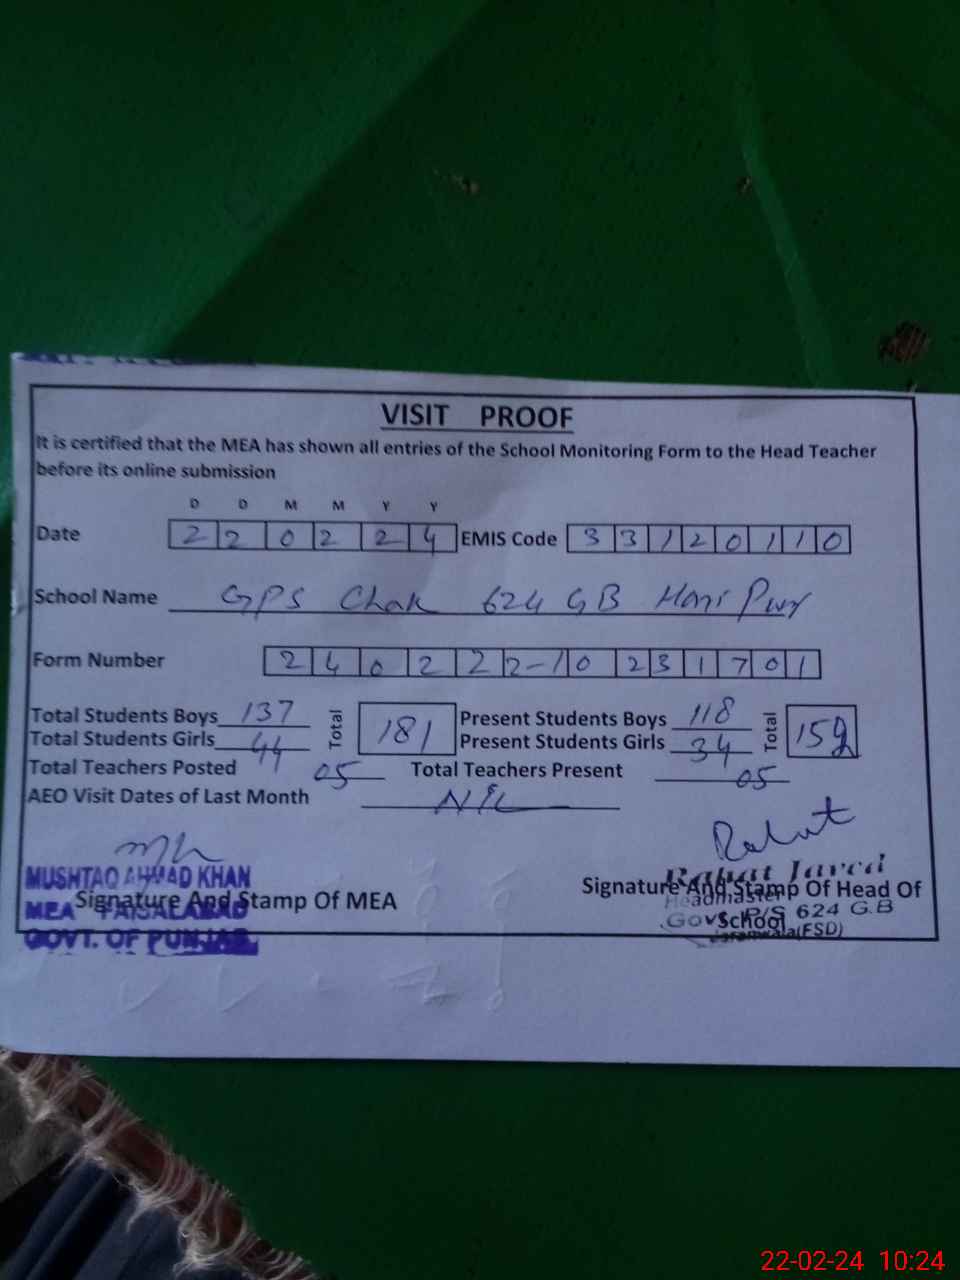 VISIT PROOF
It is certified that the MEA has shown all entries of the School Monitoring Form to the Head Teacher
before its online submission
D D M M Y Y
Date 2 2 0 2 2 4 EMIS Code 3 3 1 2 0 1 1 0
School Name GPS Chak 624 GB Hari Pur
Form Number 2 4 0 2 2 2-1 0 2 3 1 7 0 1
Total Students Boys 137 Total 181 Present Students Boys 118 Total 152
Total Students Girls 44 Present Students Girls 34
Total Teachers Posted 05 Total Teachers Present 05
AEO Visit Dates of Last Month NIL
Rahat
MUSHTAQ AHMAD KHAN
Rahat Javed
Signature And Stamp Of MEA
Signature And Stamp Of Head Of
Headmaster
MEA FAISALABAD
School
Govt. P/S 624 G.B
GOVT. OF PUNJAB
(FSD)
22-02-24 10:24